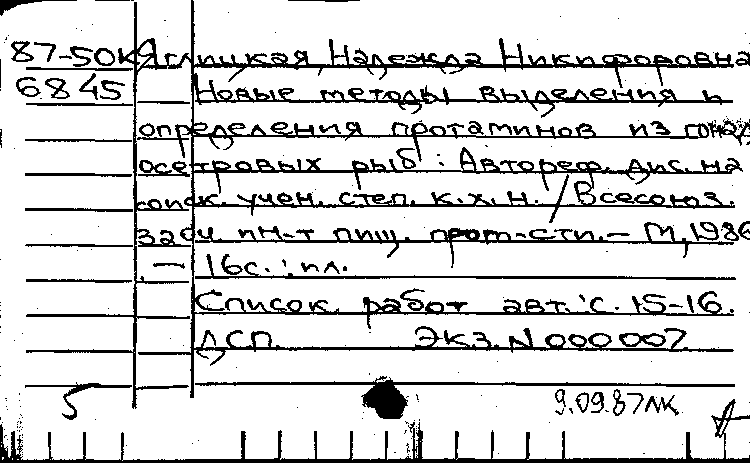 87-50к Яглицкая, Надежда Никифоровна
6845 Новые методы выделения и
определения протаминов из гонад
осетровых рыб : Автореф. дис. на
соиск. учен. степ. к. х. н. / Всесоюз.
заоч. ин-т пищ. пром-сти. – М., 1986
. – 16 с. : ил.
Список работ авт.: с. 15-16.
ДСП. Экз. N 000007
5 9.09.87 лк